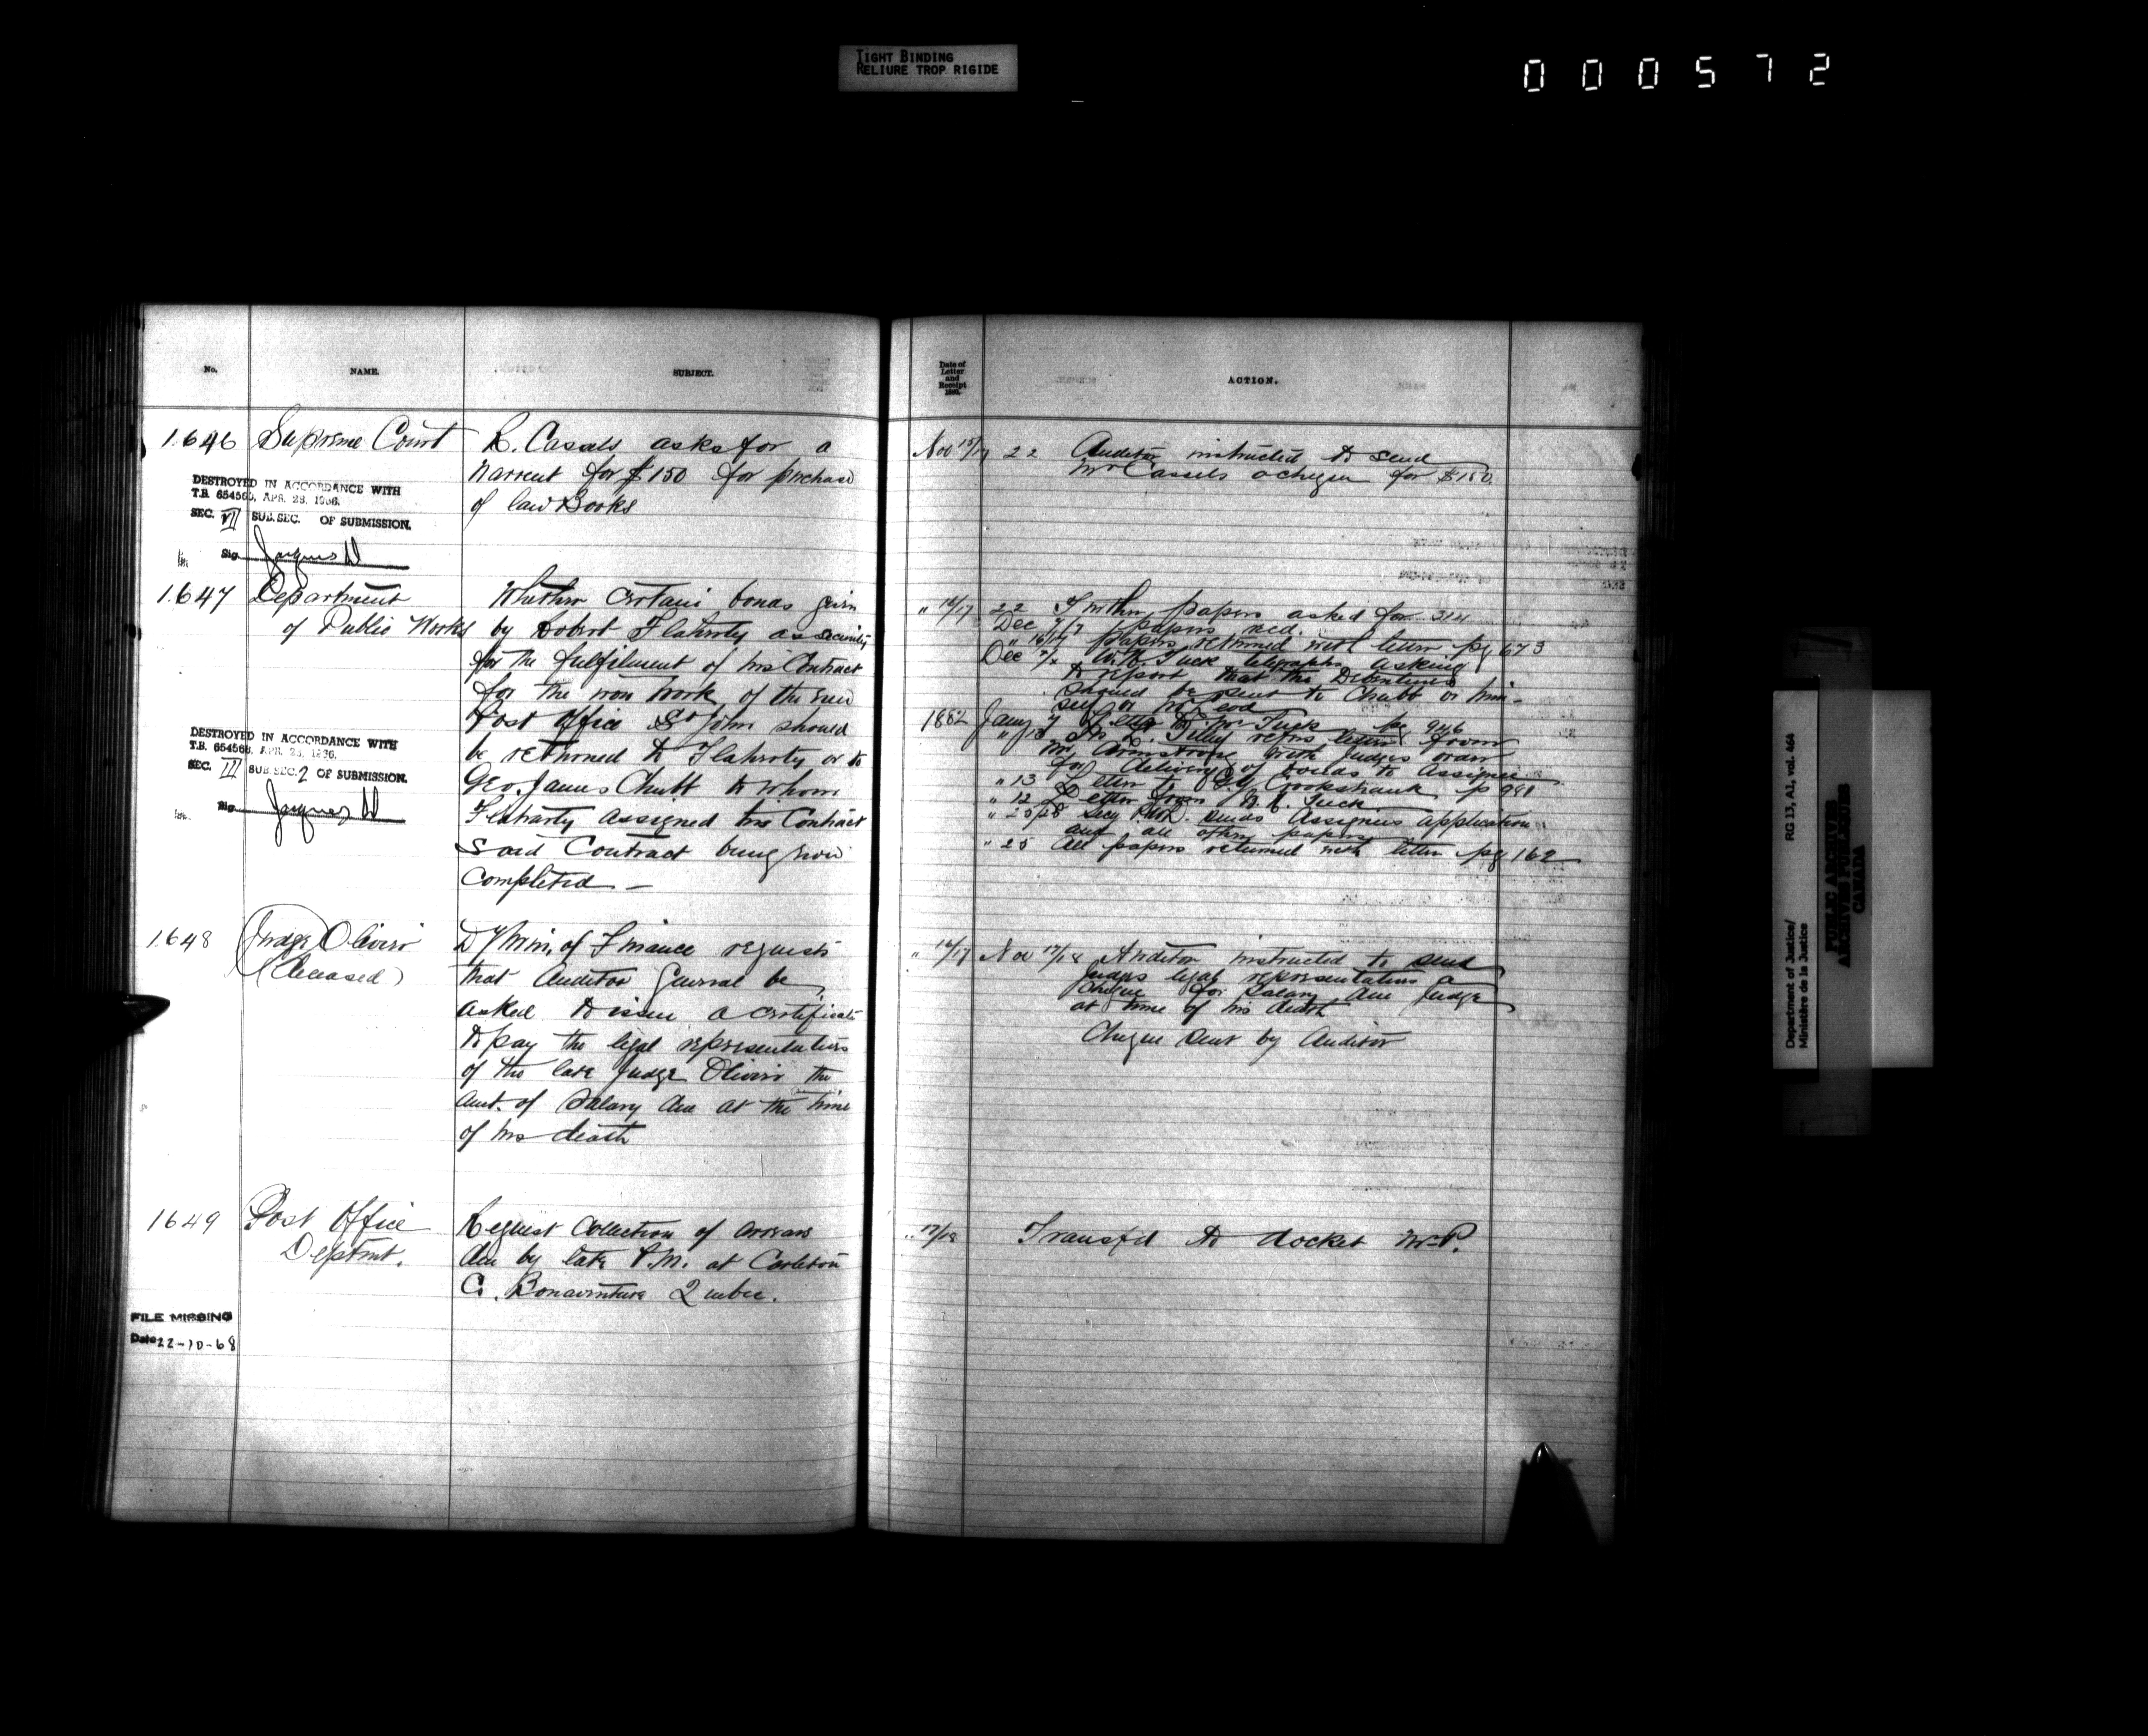 TIGHT BINDING
RELIURE TROP RIGIDE
000572
No.
NAME.
SUBJECT.
1646 Supreme Court
R. Cassels asks for a
warrent for $150 for purchase
of law Books
DESTROYED IN ACCORDANCE WITH
T.B. 654565, APR. 28, 1956.
SEC. VI SUB.SEC. OF SUBMISSION.
Sig.
1647 Department
of Public Works
Whether certain bonds given
by Robert Flaherty as security
for the fulfilment of his Contract
for the iron work of the new
Post Office St John should
be returned to Flaherty or to
Geo. James Chubb to whom
Flaharty assigned his Contract
said Contract being now
completed —
DESTROYED IN ACCORDANCE WITH
T.B. 654568, APR. 28, 1956.
SEC. III SUB SEC. 2 OF SUBMISSION.
Sig.
1648 Judge Olivier
(Deceased)
Dy Min. of Finance requests
that Auditor General be
asked to issue a certificate
to pay the legal representatives
of the late Judge Olivier the
amt. of Salary due at the time
of his death
1649 Post Office
Deptmt.
Request Collection of arrears
due by late P.M. at Carleton
Co. Bonaventure Quebec.
FILE MISSING
Date 22-10-68
Date of
Letter
and
Receipt
ACTION.
Nov 15/17 22 Auditor instructed to send
Mr Cassels a cheque for $150.
" 16/17 22 Further papers asked for 314
Dec 7/7 papers recd.
" 16/17 papers returned with letter pg 673
Dec W.H. Tuck telegraphs asking
to report that the Debentures
be sent to Chubb or him-
self or McLeod
1882 Jany 7 Letter to Mr Tuck pg 946
S. L. Tilley refers letter from
Mr. Armstrong with Judges order
for delivery of bonds to Assignee
" 13 Letter to Crookshank p 981
" 12 Letter from W. H. Tuck
" 25/28 Secy P.W. sends Assignees application
and all other papers
" 25 All papers returned with letter pg 162
" 16/17 Nov 17/18 Auditor instructed to send
Judges legal representatives a
cheque for Salary due Judge
at time of his death
Cheque sent by Auditor
" 17/18 Transfd to docket M-P.
Department of Justice/
Ministère de la Justice
RG 13, A1, vol. 464
PUBLIC ARCHIVES
ARCHIVES PUBLIQUES
CANADA